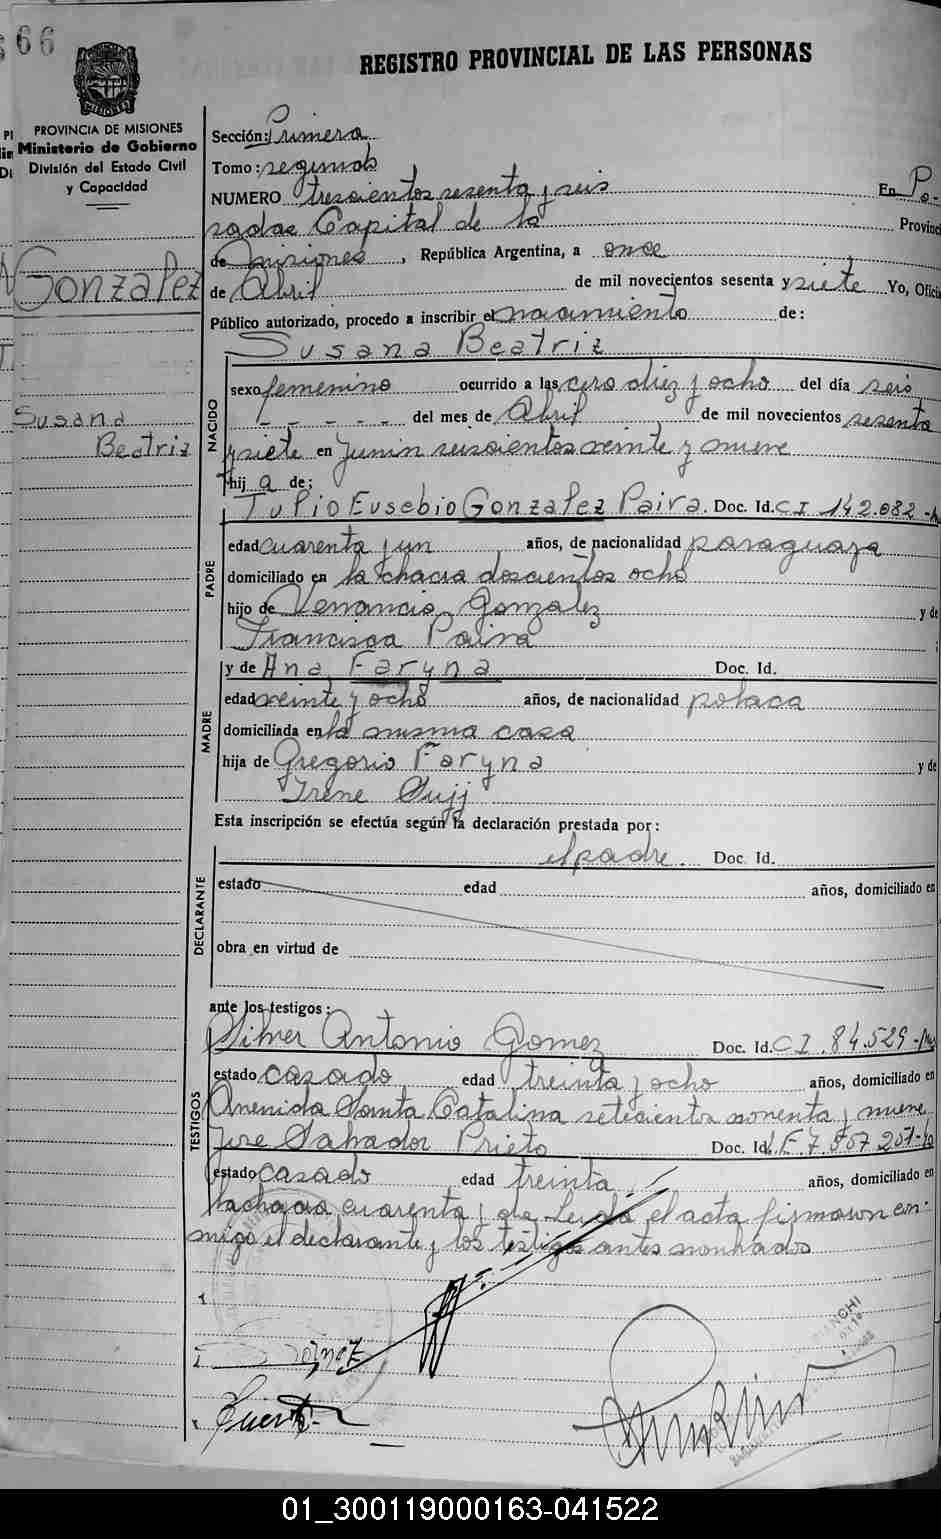 66
REGISTRO PROVINCIAL DE LAS PERSONAS
MISIONES
PROVINCIA DE MISIONES
Ministerio de Gobierno
División del Estado Civil
y Capacidad
Gonzalez
Susana
Beatriz
Sección: Primera
Tomo: segundo
NUMERO trescientos sesenta y seis En Po-
sadas Capital de la Provinci
de Misiones, República Argentina, a once
de Abril de mil novecientos sesenta y siete Yo, Oficia
Público autorizado, procedo a inscribir el nacimiento de:
Susana Beatriz
NACIDO
sexo femenino ocurrido a las cero diez y ocho del día seis
- - - - - del mes de Abril de mil novecientos sesenta
y siete en Junin seiscientos veinte y nueve
hij a de:
Tulio Eusebio Gonzalez Paiva. Doc. Id. CI 142.082
PADRE
edad cuarenta y un años, de nacionalidad paraguaya
domiciliado en la chacra doscientos ocho
hijo de Venancio Gonzalez y de
Francisca Paiva ;
y de Ana Faryna Doc. Id.
MADRE
edad veinte y ocho años, de nacionalidad polaca
domiciliada en la misma casa
hija de Gregorio Faryna y de
Irene
Esta inscripción se efectúa según la declaración prestada por:
el padre. Doc. Id.
DECLARANTE
estado edad años, domiciliado en
obra en virtud de
ante los testigos:
Antonio Gomez Doc. Id. CI. 84.529
TESTIGOS
estado casado edad treinta y ocho años, domiciliado en
Avenida Santa Catalina setecientos noventa y nueve
Jose Salvador Prieto Doc. Id. L.E. 7.557.207
estado casado edad treinta años, domiciliado en
la chacra cuarenta y Leida el acta firmaron con-
migo el declarante y los testigos antes nombrados
01_300119000163-041522